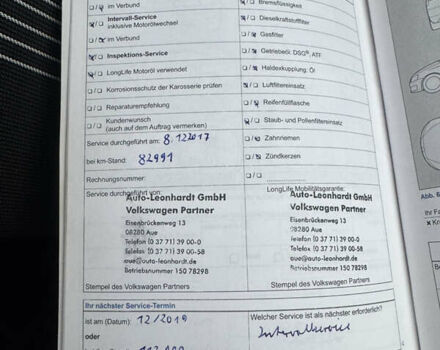 im Verbund
Bremsflüssigkeit
Intervall-Service
inklusive Motorölwechsel
Dieselkraftstofffilter
im Verbund
Gasfilter
Inspektions-Service
Getriebeöl: DSG®, ATF
LongLife Motoröl verwendet
Haldexkupplung: Öl
Korrosionsschutz der Karosserie prüfen
Luftfiltereinsatz
Reparaturempfehlung
Reifenfüllflasche
Kundenwunsch
(auch auf dem Auftrag vermerken)
Staub- und Pollenfiltereinsatz
Service durchgeführt am: 8.12.2017
Zahnriemen
bei km-Stand: 82991
Zündkerzen
Rechnungsnummer:
Service durchgeführt von:
LongLife Mobilitätsgarantie:
Auto-Leonhardt GmbH
Volkswagen Partner
Eisenbrückenweg 13
08280 Aue
Telefon (0 37 71) 39 00-0
Telefax (0 37 71) 39 00-58
aue@auto-leonhardt.de
Betriebsnummer 150 78298
Auto-Leonhardt GmbH
Volkswagen Partner
Eisenbrückenweg 13
08280 Aue
Telefon (0 37 71) 39 00-0
Telefax (0 37 71) 39 00-58
aue@auto-leonhardt.de
Betriebsnummer 150 78298
Stempel des Volkswagen Partners
Stempel des Volkswagen Partners
Ihr nächster Service-Termin
ist am (Datum): 12/2019
Welcher Service ist als nächster erforderlich?
Intervallservice
oder
Abb. 6
Ihr Fa